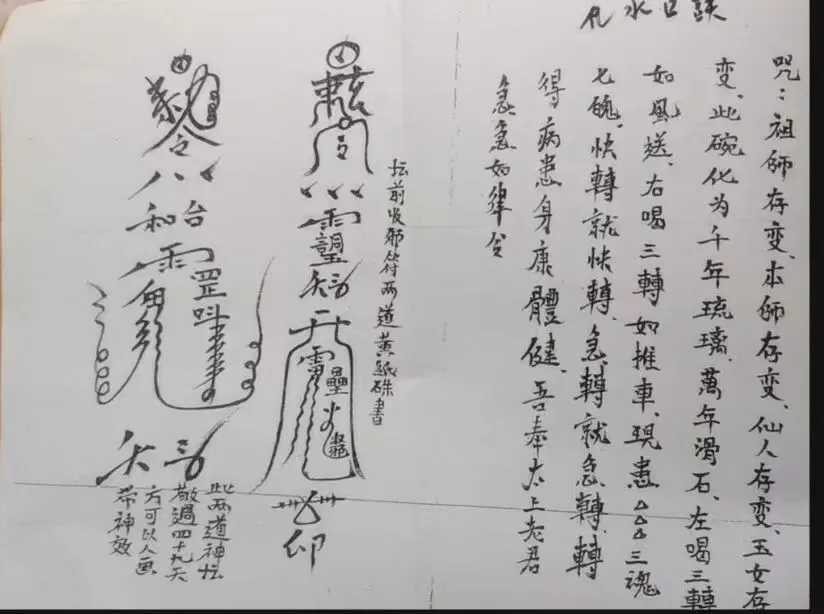 化水口訣
咒：祖師存变、本師存变、仙人存变、玉女存
变、此碗化为千年琉璃、萬年滑石、左喝三轉
如風送、右喝三轉如推車、現患△△△三魂
七魄、快轉就快轉、急轉就急轉、轉
得病患身康體健、吾奉太上老君
急急如律令
坛前收邪符两道黄紙硃書
令
雷
令
八
和台
雨罡
此两道神坛
敬過四十九天
方可以人画
带神效